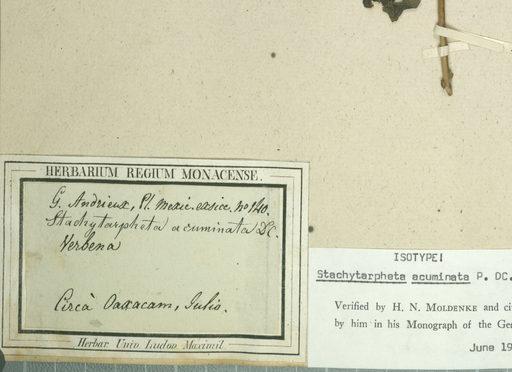 HERBARIUM REGIUM MONACENSE.
G. Andrieux, Pl. Mexic. exsicc. no 140.
Stachytarpheta acuminata DC.
Verbena
Circà Oaxacam, Julio.
Herbar. Univ. Ludov. Maximil.
ISOTYPE!
Stachytarpheta acuminata P. DC.
Verified by H. N. MOLDENKE and ci
by him in his Monograph of the Ge
June 19